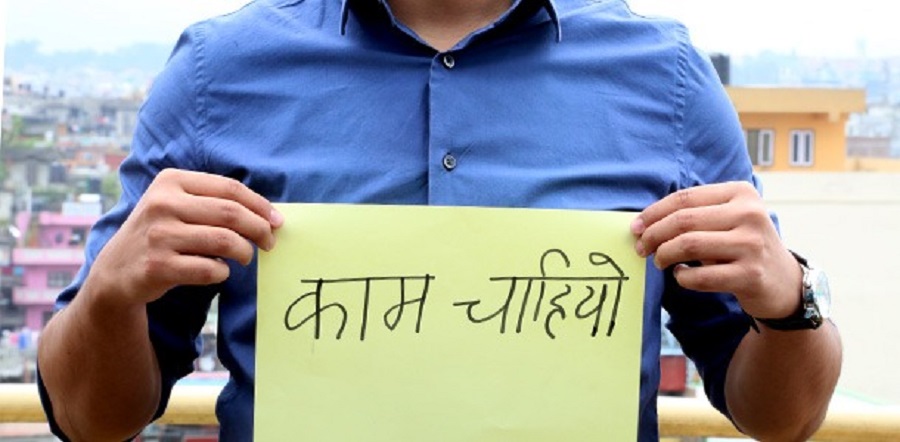 काम चाहियो